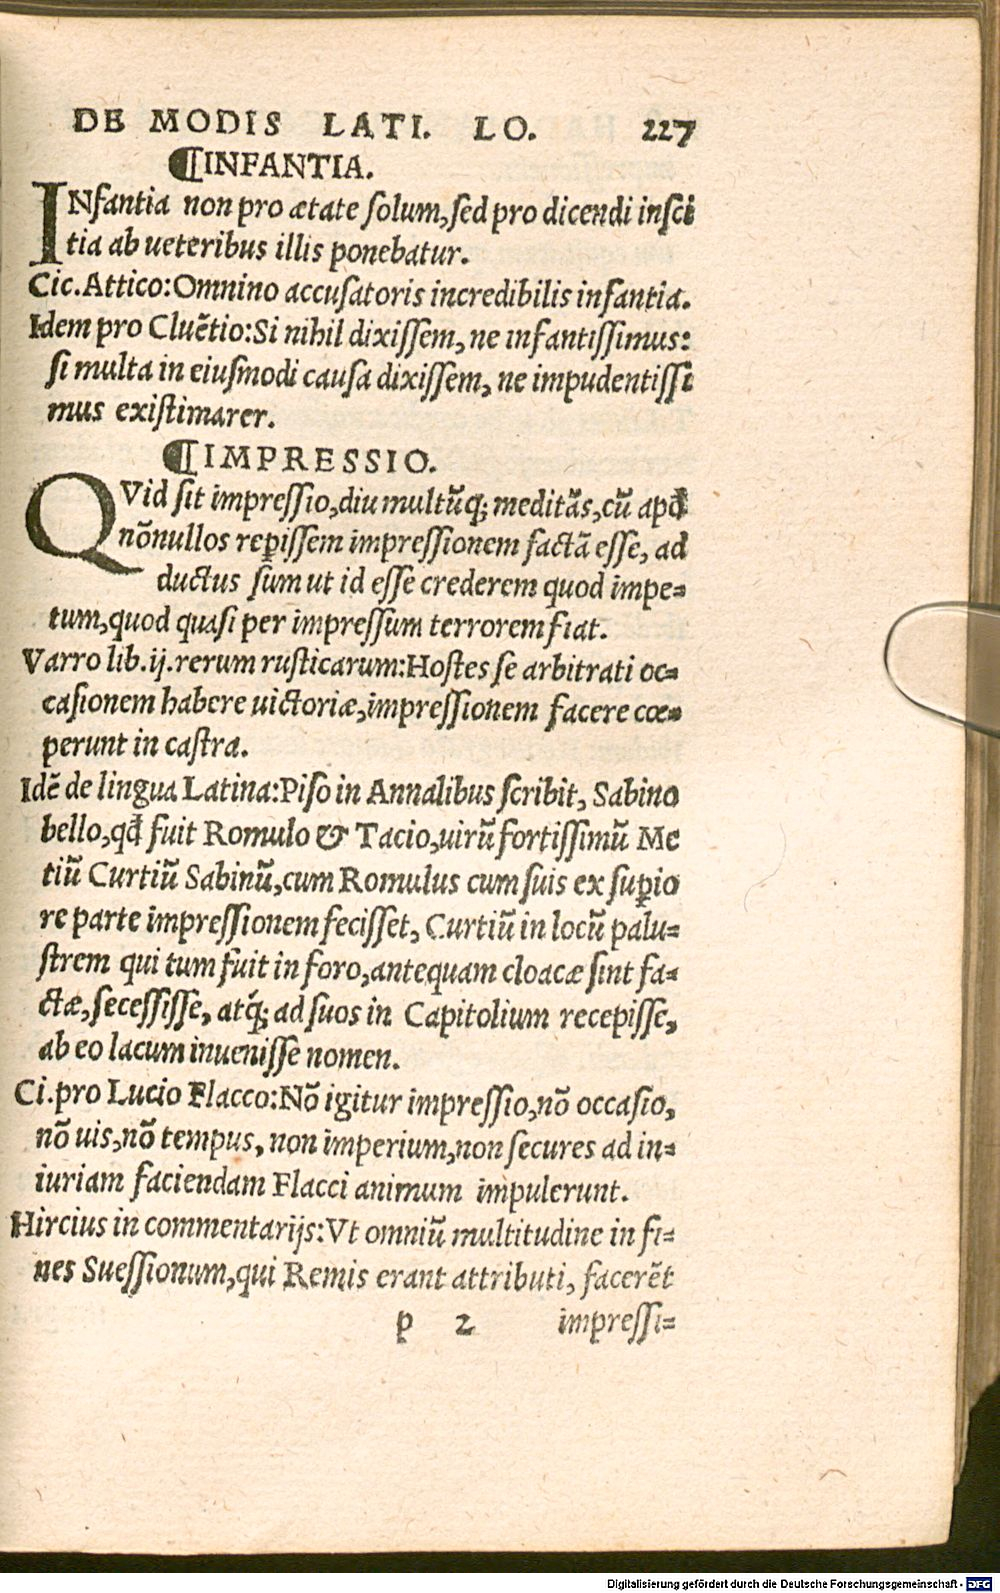 DE MODIS LATI. LO. 227
¶INFANTIA.
INfantia non pro ætate ſolum,ſed pro dicendi inſci
tia ab ueteribus illis ponebatur.
Cic.Attico:Omnino accuſatoris incredibilis infantia.
Idem pro Cluẽtio:Si nihil dixiſſem, ne infantiſſimus:
ſi multa in eiuſmodi cauſa dixiſſem, ne impudentiſſi
mus exiſtimarer.
¶IMPRESSIO.
QVid ſit impreſſio,diu multũq; meditãs,cũ apd̃
nõnullos reꝑiſſem impreſſionem factã eſſe, ad
ductus ſum ut id eſſe crederem quod impe=
tum,quod quaſi per impreſſum terrorem fiat.
Varro lib.ij.rerum ruſticarum:Hoſtes ſe arbitrati oc=
caſionem habere uictoriæ,impreſſionem facere cœ=
perunt in caſtra.
Idẽ de lingua Latina:Piſo in Annalibus ſcribit, Sabino
bello,qd̃ fuit Romulo & Tacio,uirũ fortiſſimũ Me
tiũ Curtiũ Sabinũ,cum Romulus cum ſuis ex ſuꝑio
re parte impreſſionem feciſſet, Curtiũ in locũ palu=
ſtrem qui tum fuit in foro,antequam cloacæ ſint fa=
ctæ,ſeceſſiſſe, atq́; ad ſuos in Capitolium recepiſſe,
ab eo lacum inueniſſe nomen.
Ci.pro Lucio Flacco:Nõ igitur impreſſio,nõ occaſio,
nõ uis,nõ tempus, non imperium,non ſecures ad in=
iuriam faciendam Flacci animum impulerunt.
Hircius in commentarijs:Vt omniũ multitudine in fi=
nes Sueſſionum,qui Remis erant attributi, facerẽt
p 2 impreſſi=
Digitalisierung gefördert durch die Deutsche Forschungsgemeinschaft - DFG